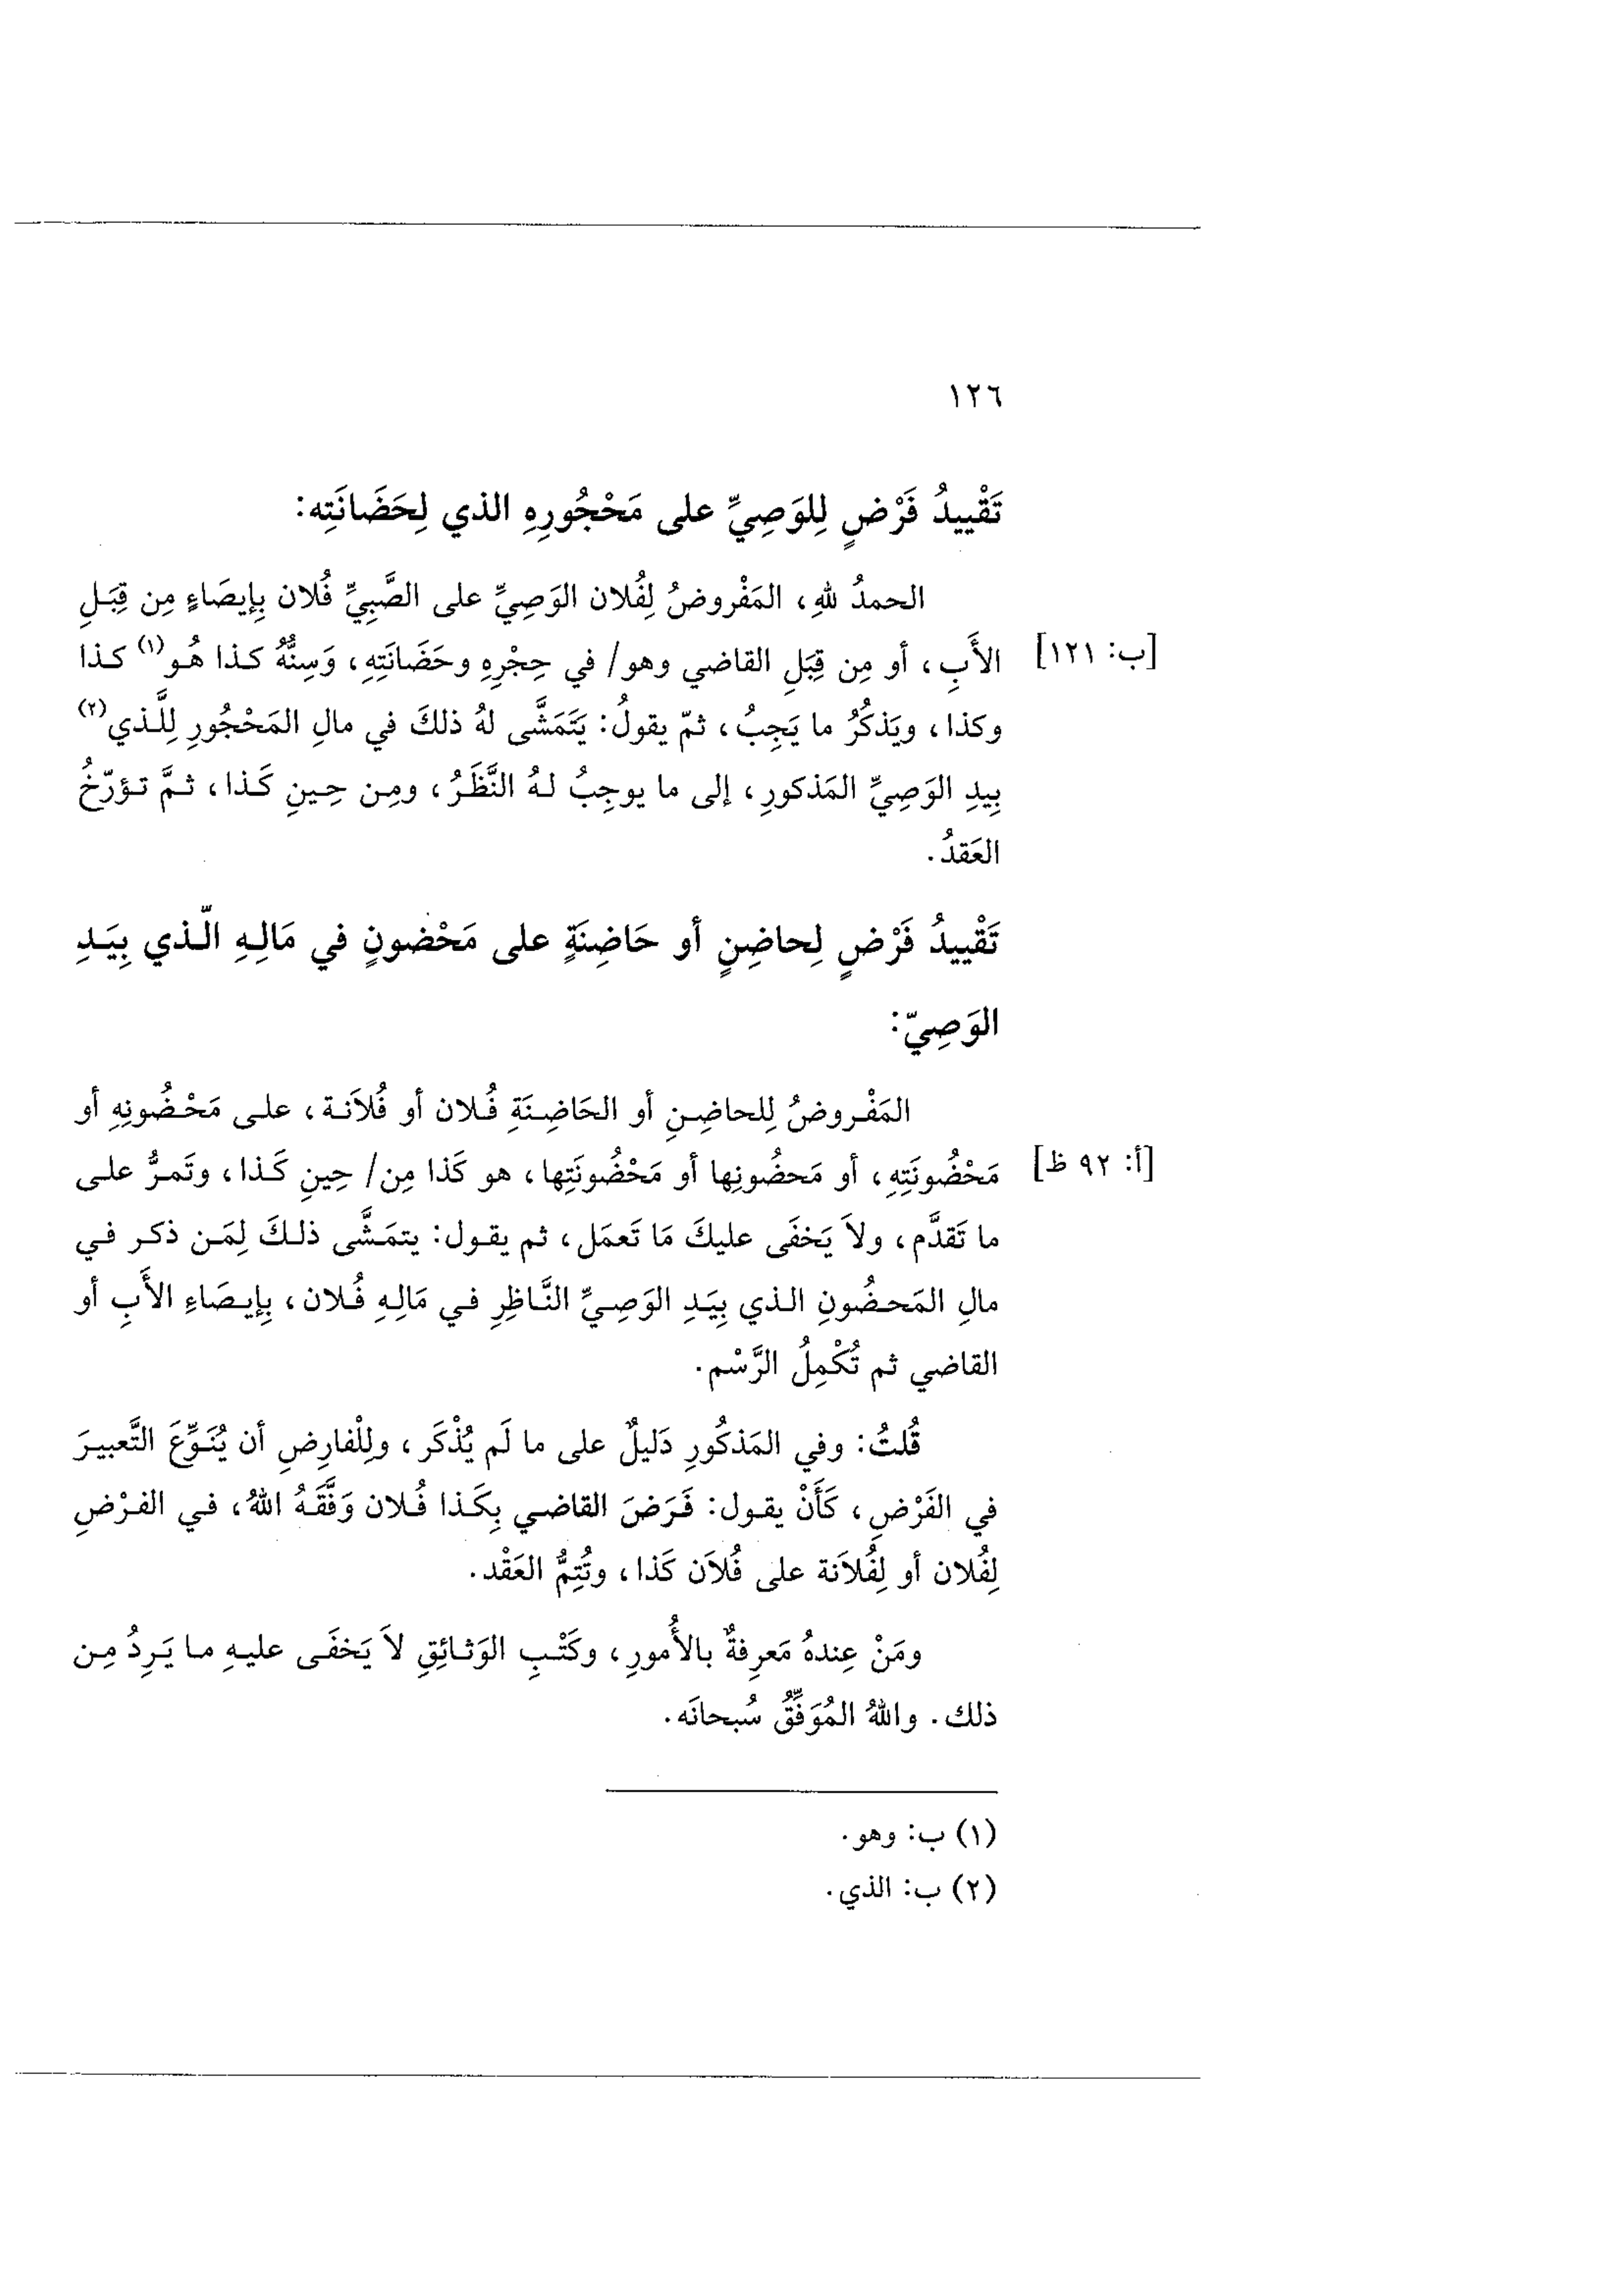 ١٢٦
تَقْييدُ فَرْضٍ لِلوَصِيِّ على مَحْجُورِهِ الذي لِحَضَانَتِه:
الحمدُ للهِ، المَفْروضُ لِفُلان الوَصِيِّ على الصَّبِيِّ فُلان بِإيصَاءٍ مِن قِبَلِ
[ب: ١٢١] الأَبِ، أو مِن قِبَلِ القاضي وهو/ في حِجْرِهِ وحَضَانَتِهِ، وَسِنُّهُ كذا هُو(١) كذا
وكذا، ويَذكُرُ ما يَجِبُ، ثمّ يقولُ: يَتَمَشَّى لهُ ذلكَ في مالِ المَحْجُورِ لِلَّذي(٢)
بِيدِ الوَصِيِّ المَذكورِ، إلى ما يوجِبُ لهُ النَّظَرُ، ومِن حِينِ كَذا، ثمَّ تؤرّخُ
العَقدُ.
تَقْييدُ فَرْضٍ لِحاضِنٍ أو حَاضِنَةٍ على مَحْضونٍ في مَالِهِ الّذي بِيَدِ
الوَصِيّ:
المَفْروضُ لِلحاضِنِ أو الحَاضِنَةِ فُلان أو فُلاَنة، على مَحْضُونِهِ أو
[أ: ٩٢ ظ] مَحْضُونَتِهِ، أو مَحضُونِها أو مَحْضُونَتِها، هو كَذا مِن/ حِينِ كَذا، وتَمرُّ على
ما تَقدَّم، ولاَ يَخفَى عليكَ مَا تَعمَل، ثم يقول: يتمَشَّى ذلكَ لِمَن ذكر في
مالِ المَحضُونِ الذي بِيَدِ الوَصِيِّ النَّاظِرِ في مَالِهِ فُلان، بِإيصَاءِ الأَبِ أو
القاضي ثم تُكْمِلُ الرَّسْم.
قُلتُ: وفي المَذكُورِ دَليلٌ على ما لَم يُذْكَر، ولِلْفارِضِ أن يُنَوِّعَ التَّعبيرَ
في الفَرْضِ، كَأَنْ يقول: فَرَضَ القاضي بِكَذا فُلان وَفَّقَهُ اللهُ، في الفرْضِ
لِفُلان أو لِفُلاَنة على فُلاَن كَذا، وتُتِمُّ العَقْد.
ومَنْ عِندهُ مَعرِفةٌ بالأُمورِ، وكَتْبِ الوَثائِقِ لاَ يَخفَى عليهِ ما يَرِدُ مِن
ذلك. واللهُ المُوَفِّقُ سُبحانَه.
(١) ب: وهو.
(٢) ب: الذي.